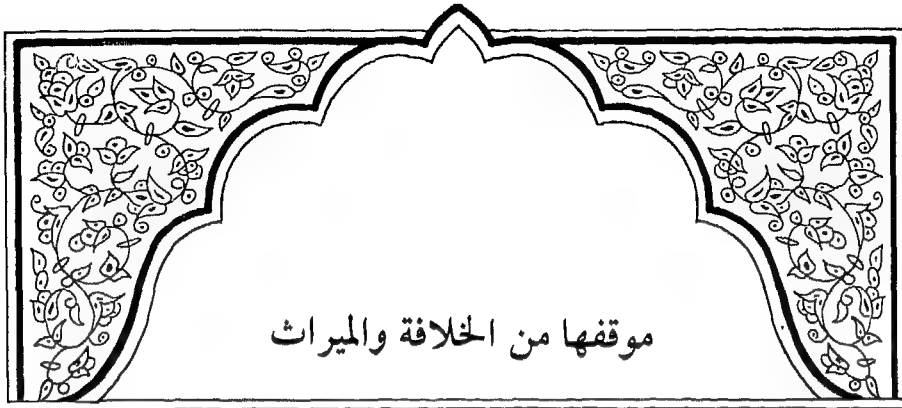 موقفها من الخلافة والميراث